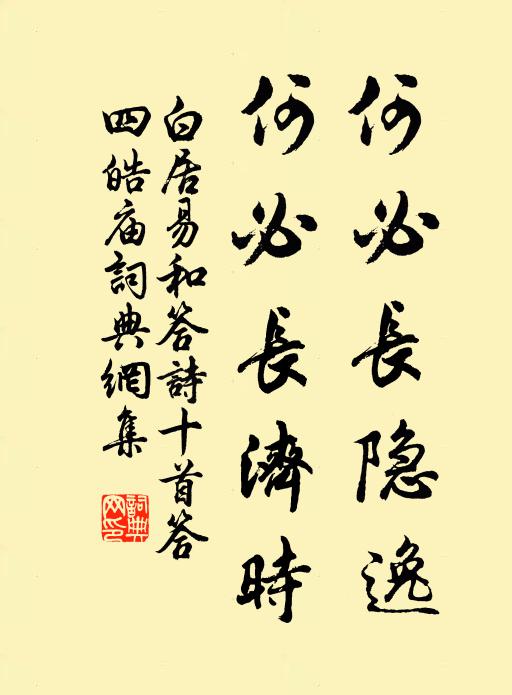 何必長隐逸
何必長濟時
白居易和答詩十首答
四皓庙詞典網集
詞典網印